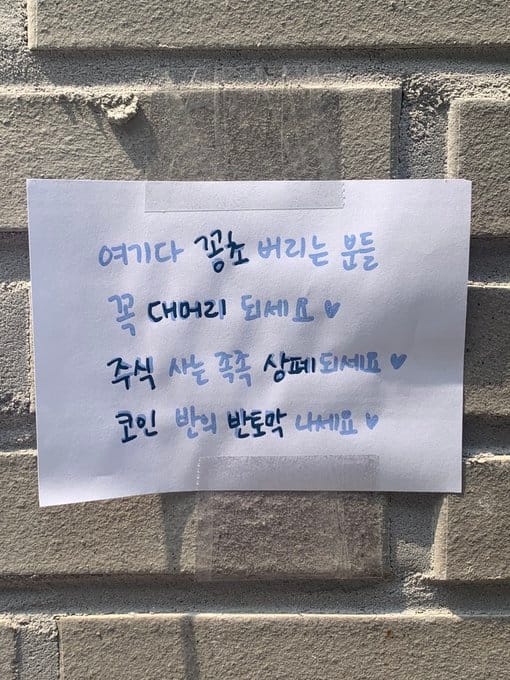 여기다 꽁초 버리는 분들
꼭 대머리 되세요♥
주식 사는 족족 상폐되세요♥
코인 반의 반토막 나세요♥